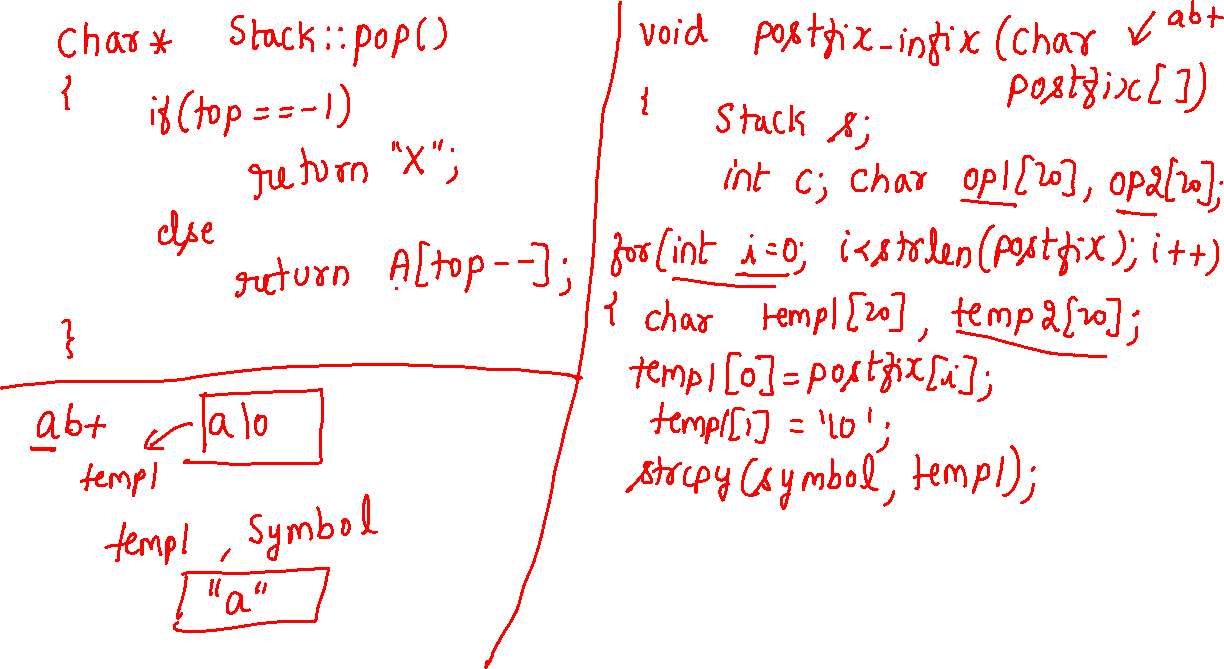 Char* Stack::pop()
{
if(top==-1)
return "X";
else
return A[top--];
}
ab+
a\0
temp1
temp1, Symbol
"a"
void postfix-infix (Char
ab+
postfix[])
{
Stack s;
int c; Char op1[20], op2[20];
for(int i=0; i<strlen(postfix); i++)
{ char temp1[20], temp2[20];
temp1[0]=postfix[i];
temp1[1] = '\0';
strcpy(symbol, temp1);